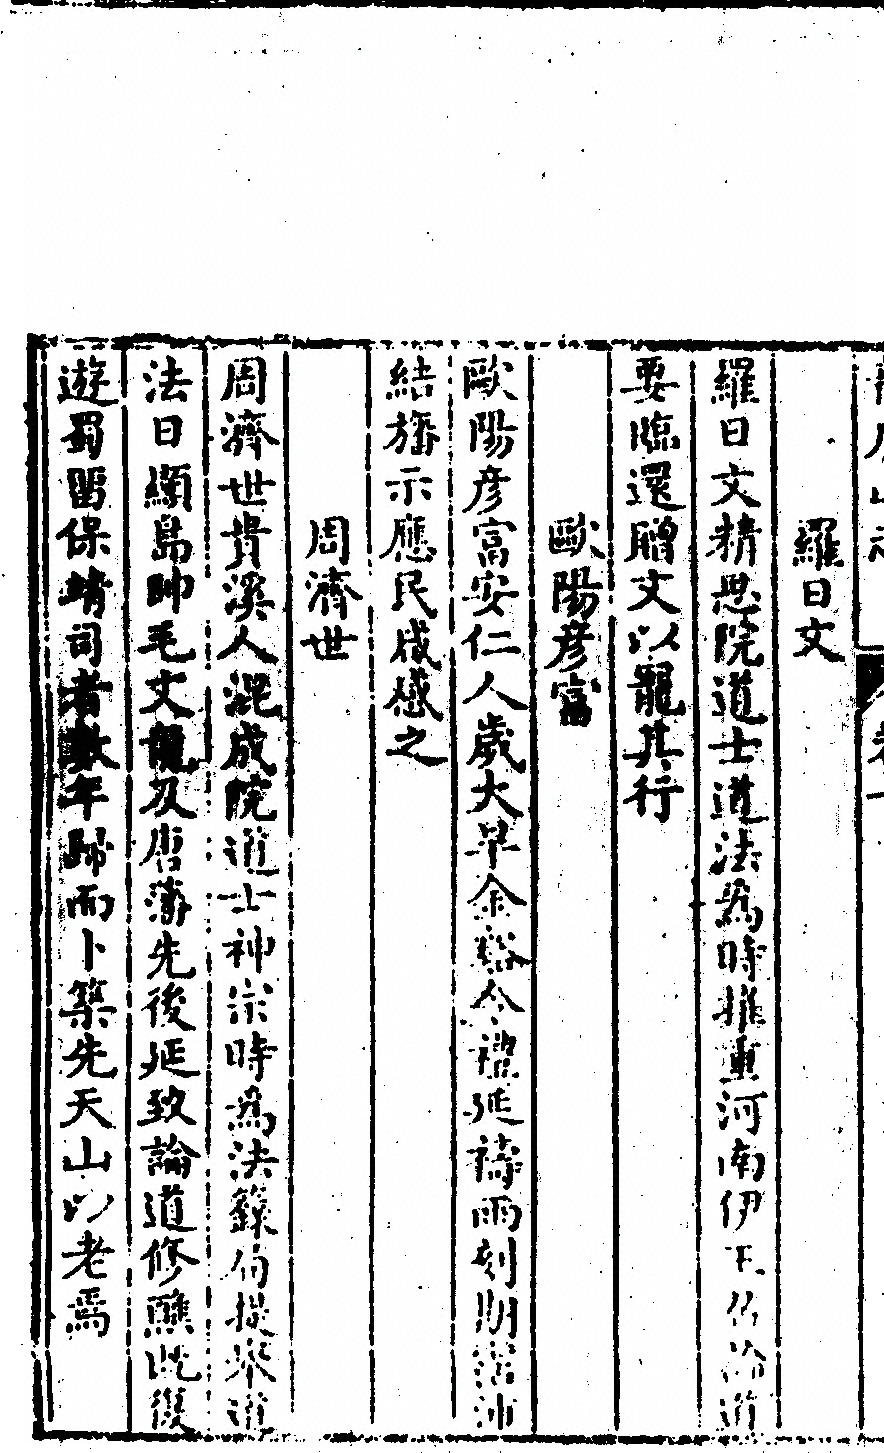 羅日文
羅日文精思院道士道法為時推重河南伊王召論道
要臨還贈文以寵其行
歐陽彦富
歐陽彦富安仁人歲大旱金谿令禮延禱雨刻期滂沛
結旛示應民咸感之
周濟世
周濟世貴溪人混成院道士神宗時為法籙局提舉道
法日顯島帥毛文龍及唐藩先後延致論道修醮既復
遊蜀留保靖司者數年歸而卜築先天山以老焉